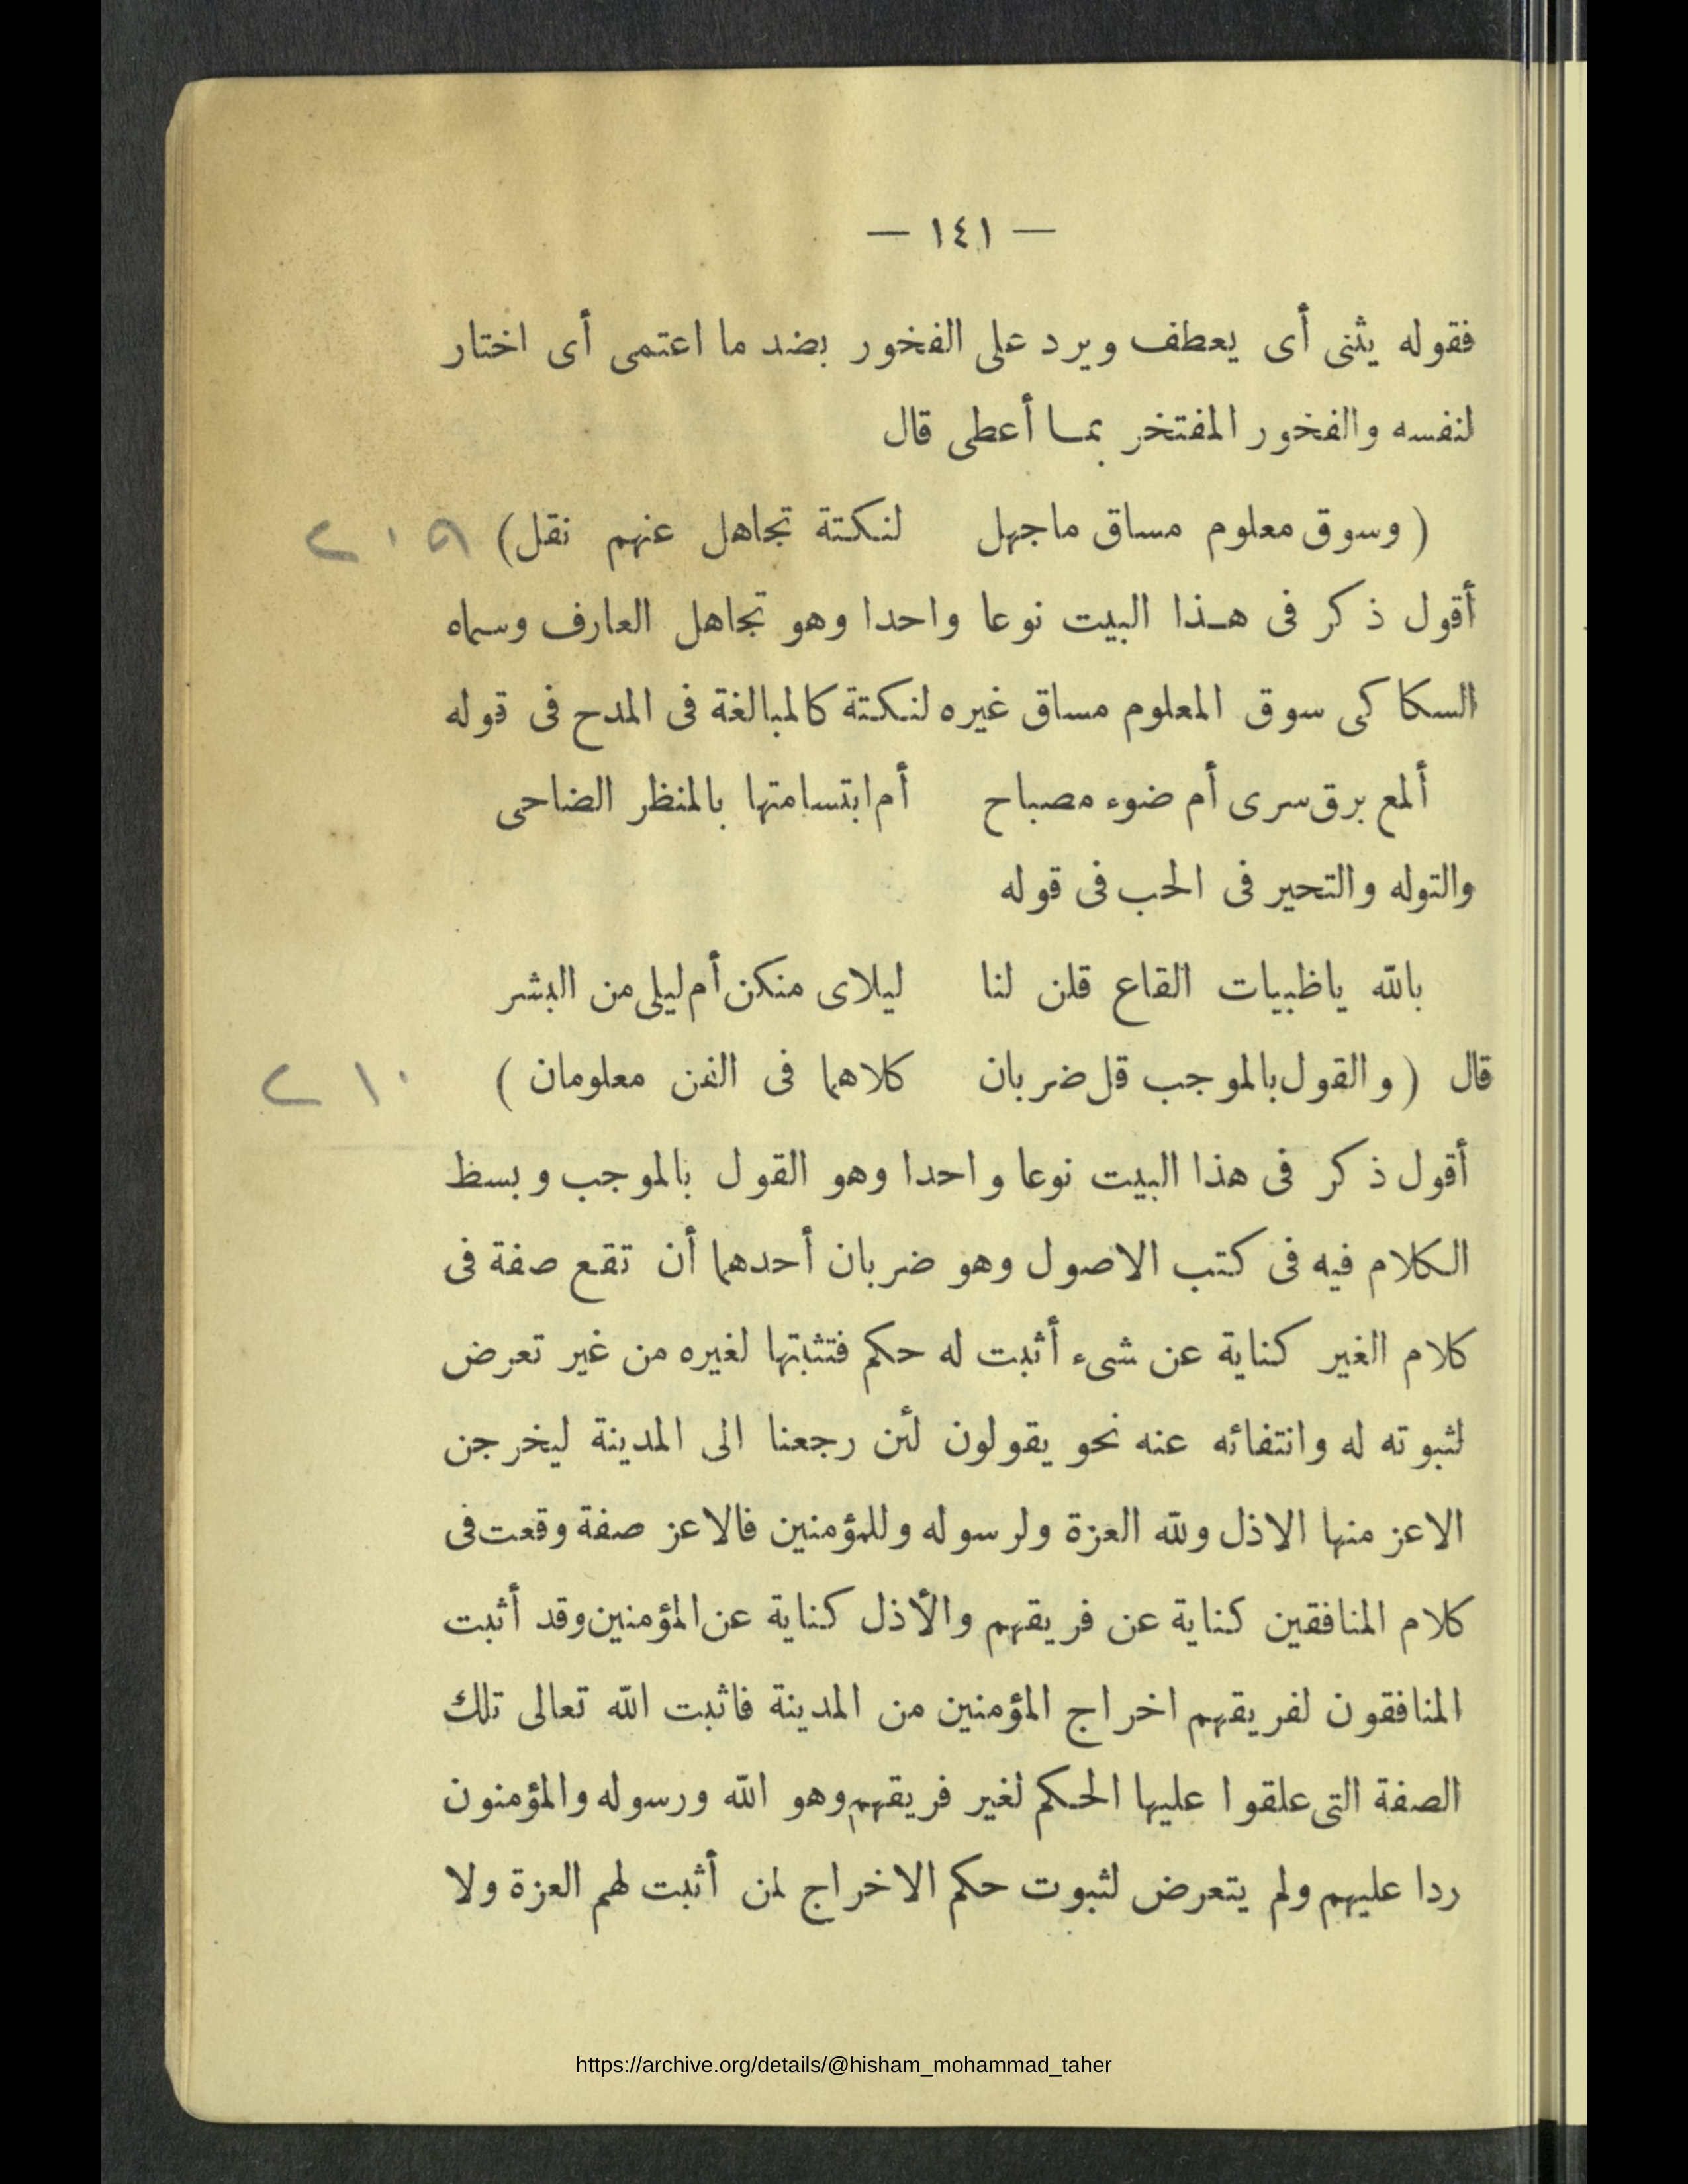 — ١٤١ —
فقوله يثنى أى يعطف ويرد على الفخور بضد ما اعتمى أى اختار
لنفسه والفخور المفتخر بمـا أعطى قال
( وسوق معلوم مساق ماجهل لنكتة تجاهل عنهم نقل) ٢٠٩
أقول ذكر فى هـذا البيت نوعا واحدا وهو تجاهل العارف وسماه
السكاكى سوق المعلوم مساق غيره لنكتة كالمبالغة فى المدح فى قوله
ألمع برق سرى أم ضوء مصباح أم ابتسامتها بالمنظر الضاحى
والتوله والتحير فى الحب فى قوله
بالله ياظبيات القاع قلن لنا ليلاى منكن أم ليلى من البشر
قال ( والقول بالموجب قل ضربان كلاهما فى الفن معلومان ) ٢١٠
أقول ذكر فى هذا البيت نوعا واحدا وهو القول بالموجب وبسط
الكلام فيه فى كتب الاصول وهو ضربان أحدهما أن تقع صفة فى
كلام الغير كناية عن شىء أثبت له حكم فتثبتها لغيره من غير تعرض
لثبوته له وانتفائه عنه نحو يقولون لئن رجعنا الى المدينة ليخرجن
الاعز منها الاذل ولله العزة ولرسوله وللمؤمنين فالاعز صفة وقعت فى
كلام المنافقين كناية عن فريقهم والأذل كناية عن المؤمنين وقد أثبت
المنافقون لفريقهم اخراج المؤمنين من المدينة فاثبت الله تعالى تلك
الصفة التى علقوا عليها الحكم لغير فريقهم وهو الله ورسوله والمؤمنون
ردا عليهم ولم يتعرض لثبوت حكم الاخراج لمن أثبت لهم العزة ولا
https://archive.org/details/@hisham_mohammad_taher